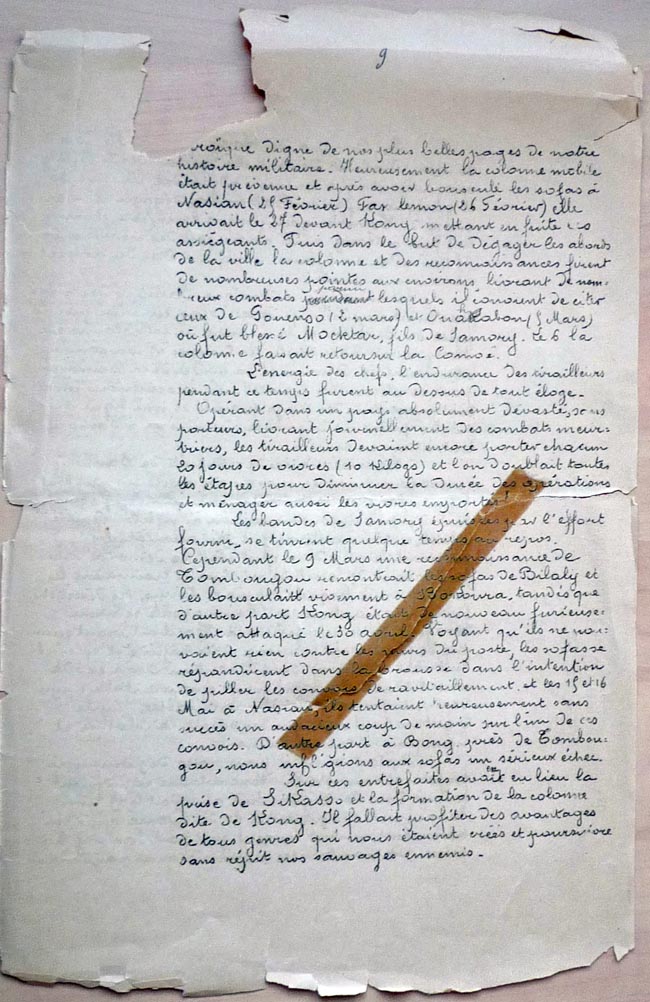 9
roïque digne de nos plus belles pages de notre
histoire militaire. Heureusement la colonne mobile
était prévenue et après avoir bousculé les sofas à
Nasian (25 Février) (26 Février) elle
arrivait le 27 devant Kong, mettant en fuite les
assiégeants. Puis dans le but de dégager les abords
de la ville la colonne et des reconnaissances firent
de nombreuses pointes aux environs, livrant de nom-
breux combats lesquels il convient de citer
ceux de Gouenso (2 mars) et (5 Mars)
où fut blessé Mocktar, fils de Samory. Le 6 la
colonne faisait retour sur la Comoé.
L'énergie des chefs, l'endurance des tirailleurs
pendant ce temps furent au dessus de tout éloge.
Opérant dans un pays absolument dévasté, sans
porteurs, livrant journellement des combats meur-
triers, les tirailleurs devaient encore porter chacun
20 jours de vivres (10 kilogs) et l'on doublait toutes
les étapes pour diminuer la durée des opérations
et ménager aussi les vivres emportés!
Les bandes de Samory épuisées par l'effort
fourni, se tinrent quelque temps au repos.
Cependant le 9 Mars une reconnaissance de
Tombougou rencontrait les sofas de Bilaly et
les bousculait vivement à tandis que
d'autre part Kong était de nouveau furieuse-
ment attaqué le 30 avril. Voyant qu'ils ne pou-
vaient rien contre les murs du poste, les sofas se
répandirent dans la brousse dans l'intention
de piller les convois de ravitaillement et les 15 et 16
Mai à Nasian, ils tentaient heureusement sans
succès un audacieux coup de main sur l'un de ces
convois. D'autre part à Bong, près de Tombou-
gou, nous infligions aux sofas un sérieux échec.
Sur ces entrefaites avait eu lieu la
prise de Sikasso et la formation de la colonne
dite de Kong. Il fallait profiter des avantages
de tous genres qui nous étaient créés et poursuivre
sans répit nos sauvages ennemis.